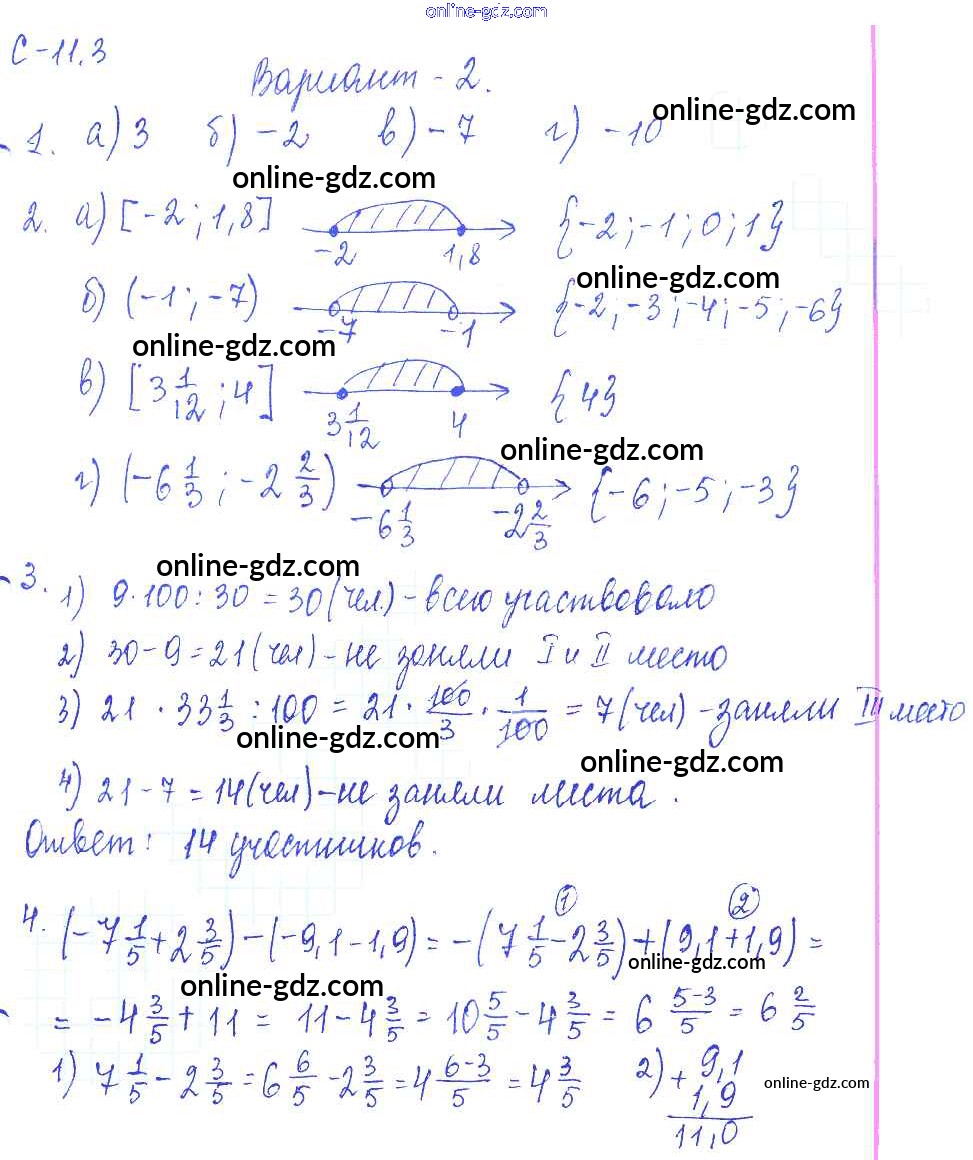 online-gdz.com
С-11.3
Вариант - 2.
online-gdz.com
1. а) 3 б) -2 в) -7 г) -10
online-gdz.com
2. а) [-2 ; 1,8] -2 1,8 {-2 ; -1 ; 0 ; 1}
online-gdz.com
б) (-1 ; -7) -7 -1 {-2 ; -3 ; -4 ; -5 ; -6}
online-gdz.com
в) [3 1/12 ; 4] 3 1/12 4 {4}
online-gdz.com
г) (-6 1/3 ; -2 2/3) -6 1/3 -2 2/3 {-6 ; -5 ; -3}
online-gdz.com
3. 1) 9·100 : 30 = 30 (чел.) - всего участвовало
2) 30 - 9 = 21 (чел) - не заняли I и II место
3) 21 · 33 1/3 : 100 = 21 · 100/3 · 1/100 = 7 (чел) - заняли III место
online-gdz.com
online-gdz.com
4) 21 - 7 = 14 (чел) - не заняли места.
Ответ: 14 участников.
1 2
4. (-7 1/5 + 2 3/5) - (-9,1 - 1,9) = -(7 1/5 - 2 3/5) + (9,1 + 1,9) =
online-gdz.com
online-gdz.com
= -4 3/5 + 11 = 11 - 4 3/5 = 10 5/5 - 4 3/5 = 6 5-3/5 = 6 2/5
1) 7 1/5 - 2 3/5 = 6 6/5 - 2 3/5 = 4 6-3/5 = 4 3/5 2) + 9,1
online-gdz.com
1,9
11,0